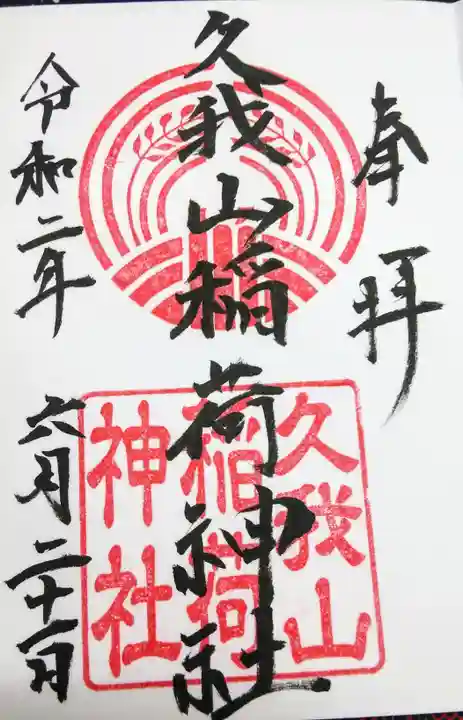 奉拝
久我山稲荷神社
久我山
稲荷
神社
令和二年
六月二十一日